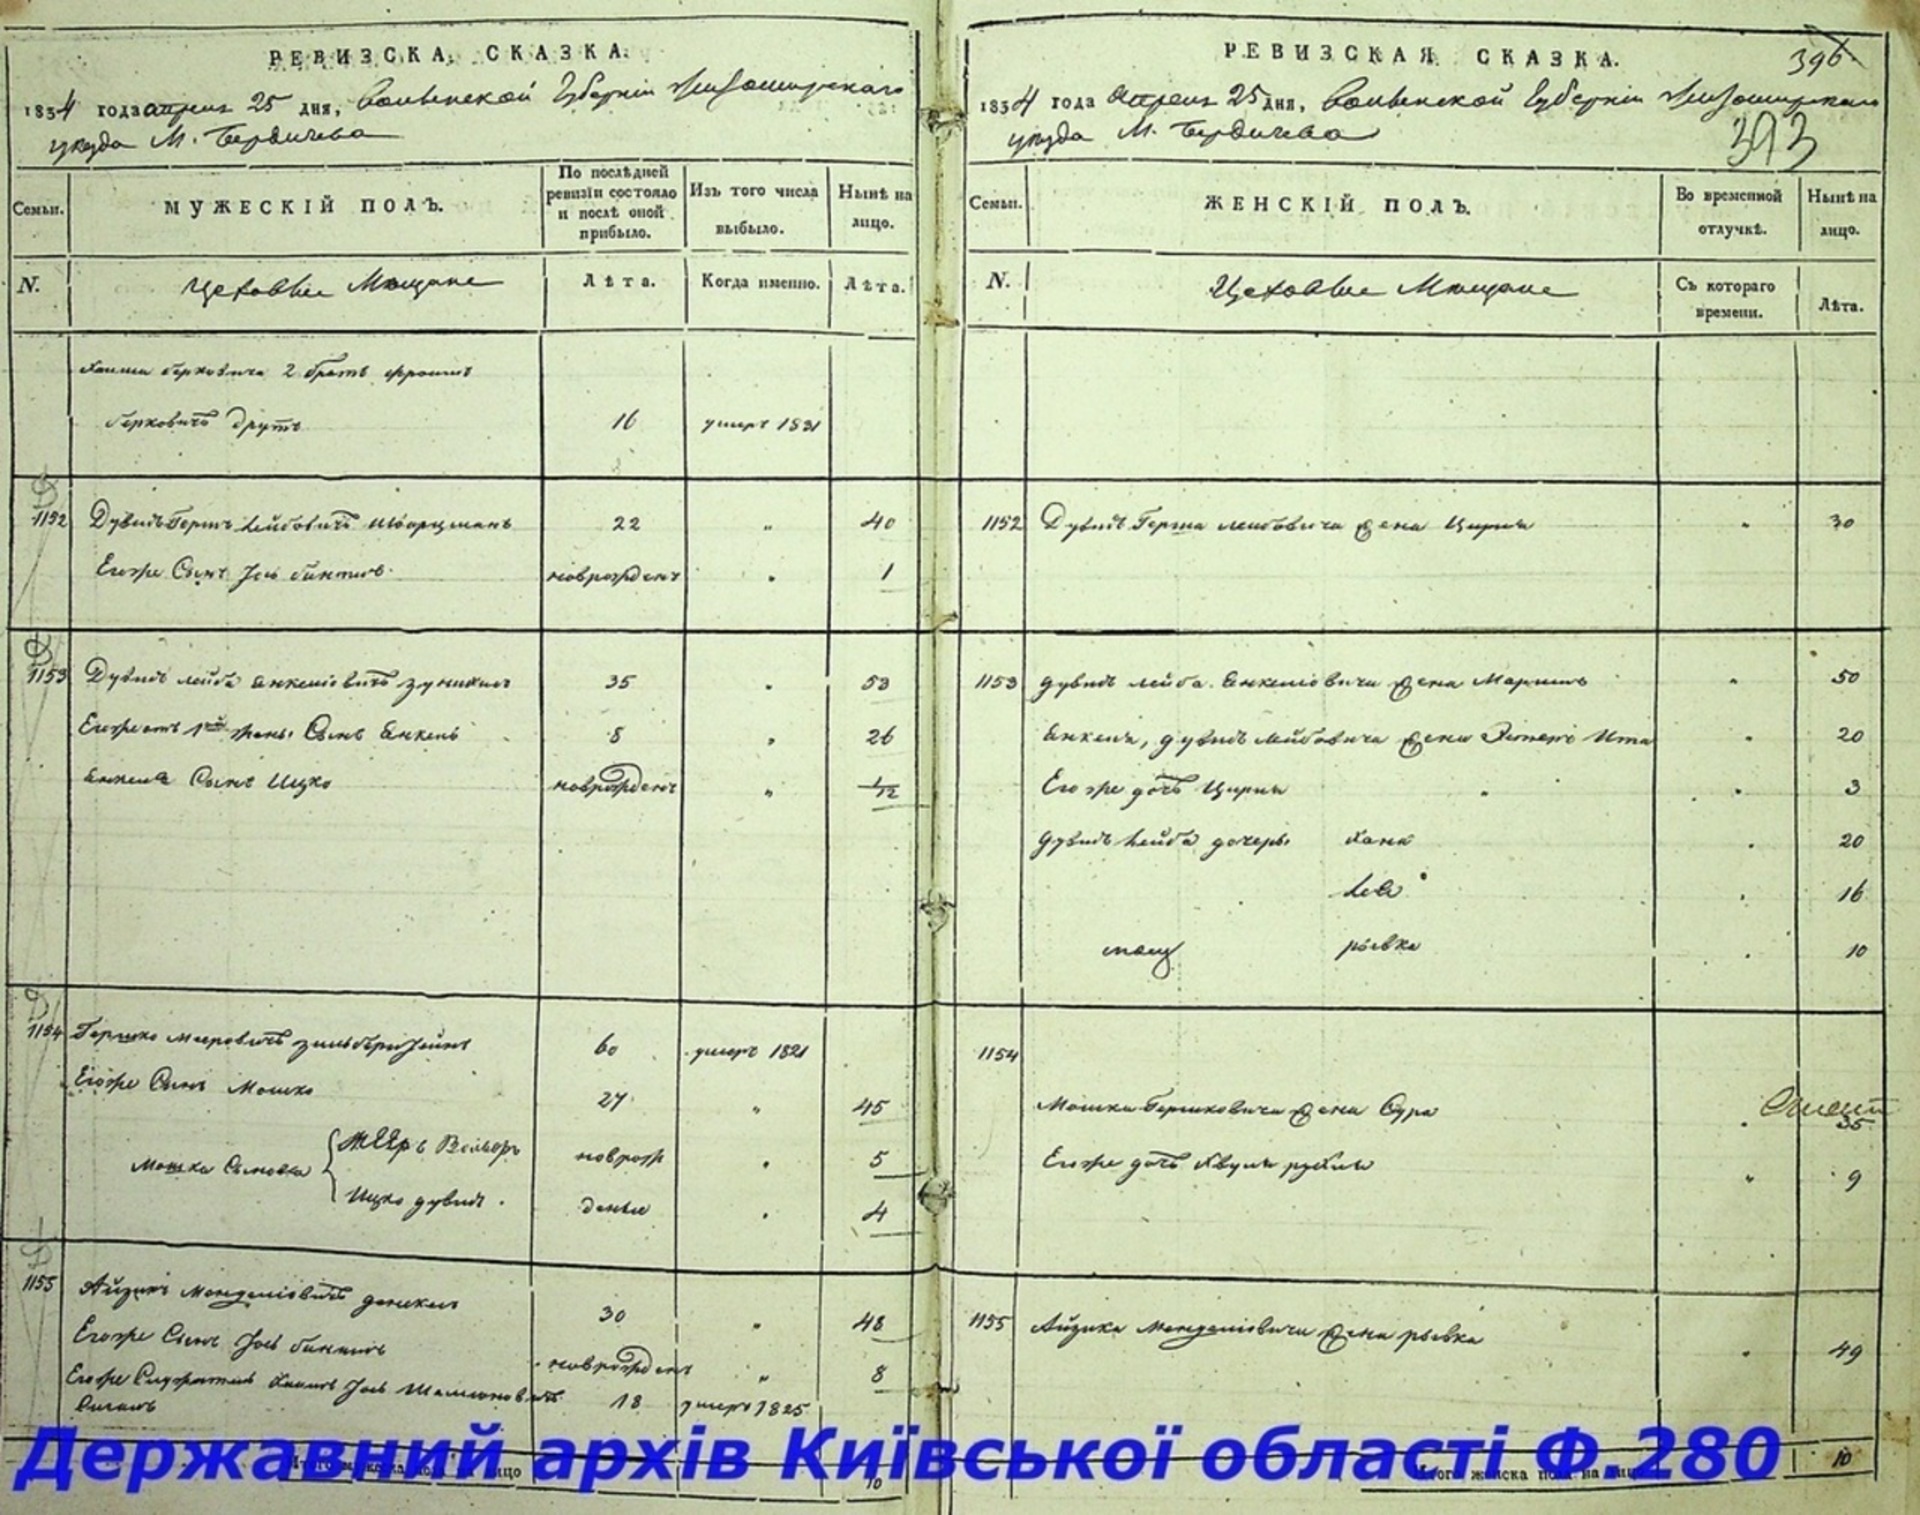 РЕВИЗСКА СКАЗКА.
1834 года апреля 25 дня, Волынской Губернии Житомирского
уезда М. Бердичева
Семьи.
МУЖЕСКІЙ ПОЛЪ.
По послѣдней
ревизіи состояло
и послѣ оной
прибыло.
Изъ того числа
выбыло.
Нынѣ на
лицо.
N.
Цеховые Мещане
Лѣта.
Когда именно.
Лѣта.
2 братъ
Берковичъ Друтъ 16 умеръ 1831
1152 Дувидъ Гершъ Лейбовичъ Шварцманъ 22 " 40
Егоже Сынъ Іось новорожденъ " 1
1153 Дувидъ Лейба Янкелiовичъ 35 " 53
Егоже отъ 1й жены Сынъ Янкель 8 " 26
Янкеля Сынъ Ицко новорожденъ " 1/12
1154 Гершко Мееровичъ Зильберштейнъ 60 умеръ 1821
Егоже Сынъ Мошко 27 " 45
Мееръ Вольфъ новорож " 5
Мошка Сыновья
Ицко Дувидъ деные " 4
1155 Айзикъ Менделiовичъ 30 " 48
Егоже Сынъ Іось новорожденъ " 8
Егоже Іось 18 умеръ 1825
Итого мужеска полу на лицо 10
РЕВИЗСКАЯ СКАЗКА.
396
1834 года апреля 25 дня, Волынской Губернии Житомирского
уезда М. Бердичева
393
Семьи.
ЖЕНСКІЙ ПОЛЪ.
Во временной
отлучкѣ.
Нынѣ на
лицо.
N.
Цеховые Мещане
Съ котораго
времени.
Лѣта.
1152 Дувидъ Герша Лейбовича жена Цирля " 30
1153 Дувидъ Лейба Янкелiовича жена " 50
Янкеля, Дувидъ Лейбовича жена Ита " 20
Егоже дочь Цирля " 3
Дувидъ Лейба дочери Хана " 20
Лея " 16
Рывка " 10
1154
Мошка Гершковича жена Сура " 35
Егоже дочь " 9
1155 Айзика Менделiовича жена Рывка " 49
Итого женска полу на лицо 10
Державний архів Київської області Ф.280